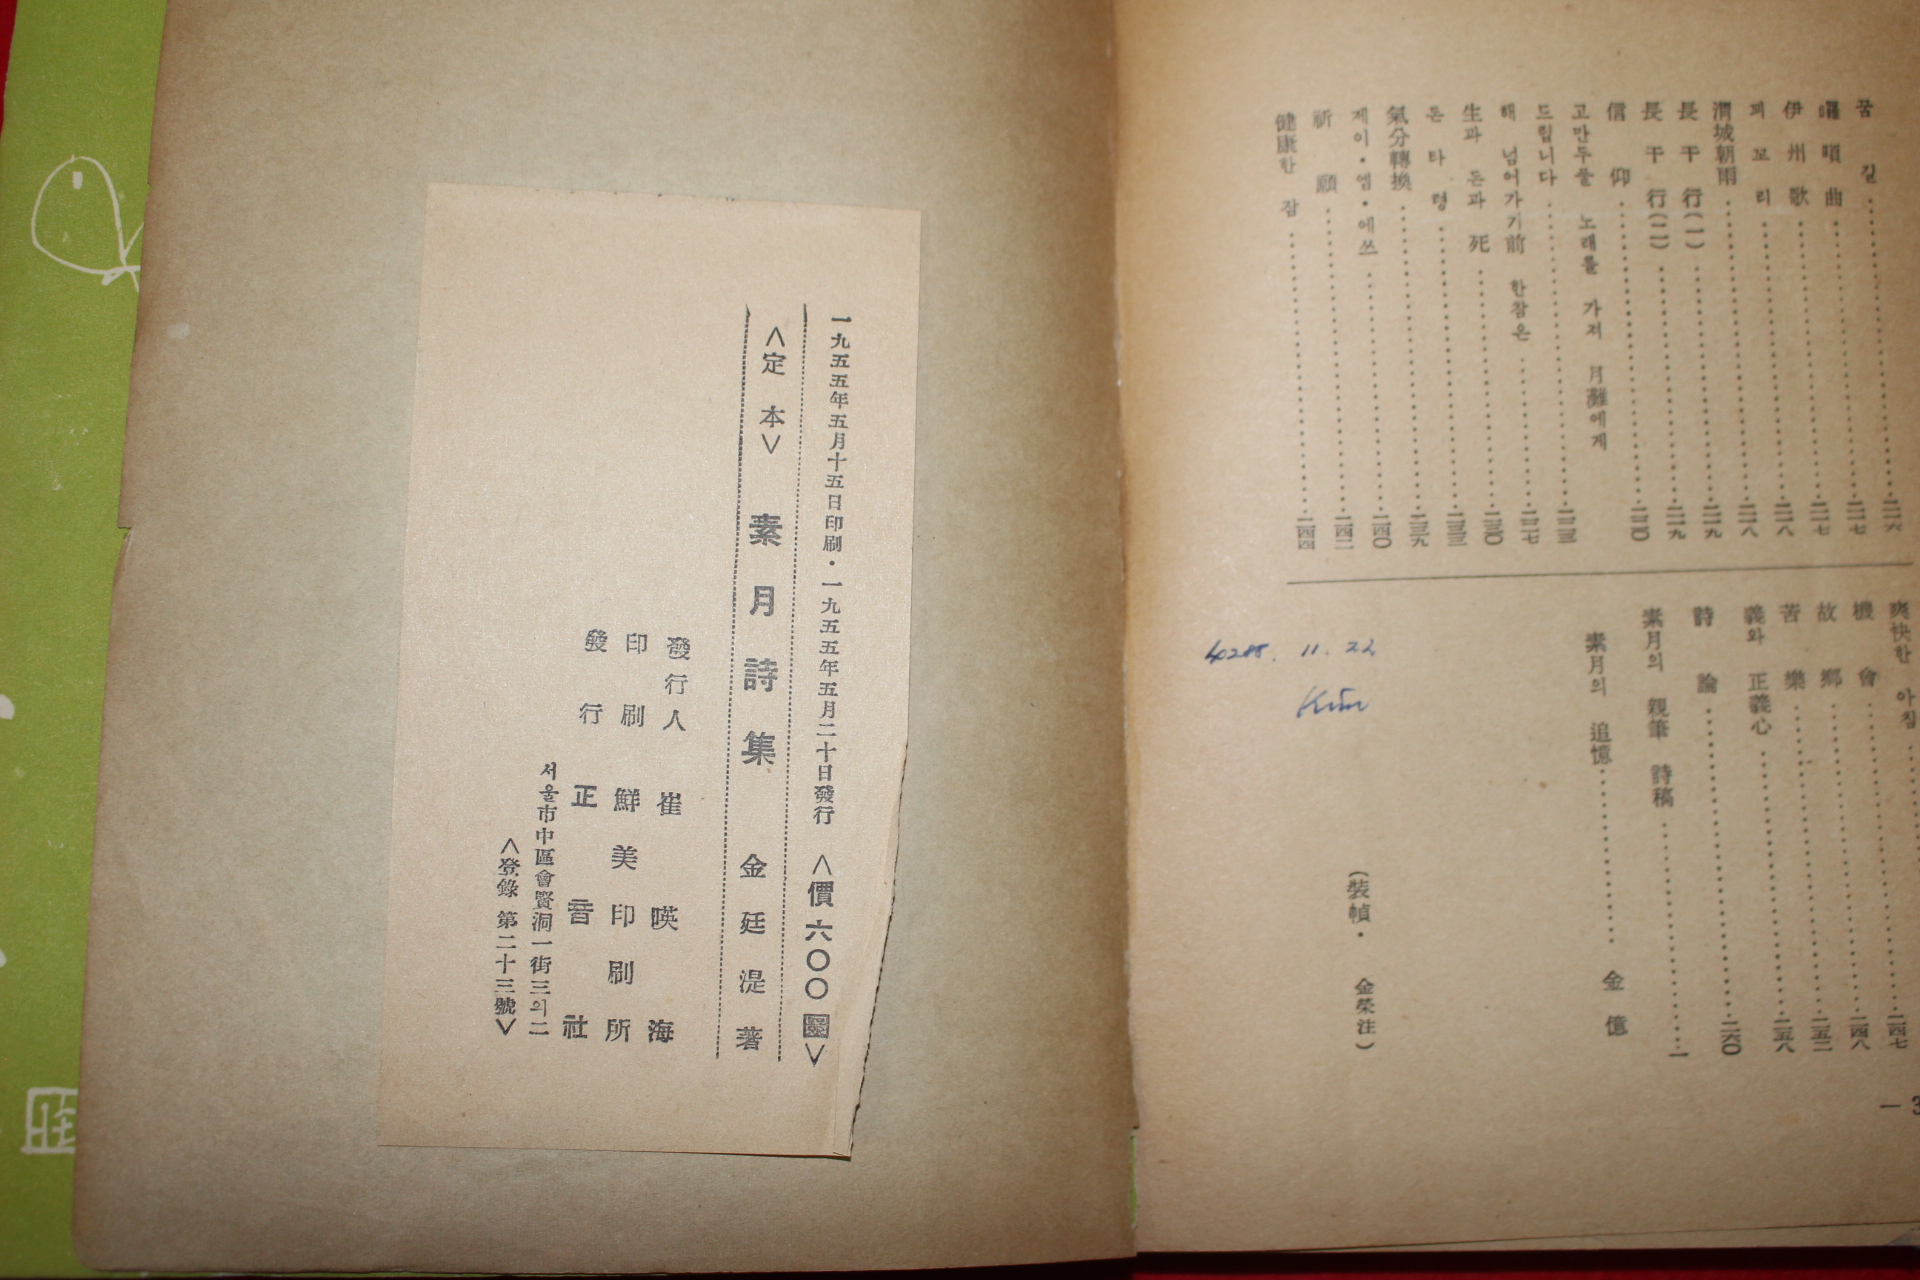 一九五五年五月十五日印刷·一九五五年五月二十日發行 <價 六〇〇 圜>
<定本> 素月詩集 金廷湜著
發行人 崔暎海
印刷 鮮美印刷所
發行 正音社
서울市中區會賢洞一街三의二
<登錄 第二十三號>
꿈길……二一六
囉嗊曲……二一七
伊州歌……二一七
꾀꼬리……二一八
渭城朝雨……二一八
長干行(一)……二一九
長干行(二)……二一九
信仰……二二〇
고만두풀 노래를 가저 月灘에게
드립니다……二二三
해 넘어가기前 한참은……二二七
生과 돈과 死……二三〇
돈타령……二三三
氣分轉換……二三九
제이·엠·에쓰……二四〇
祈願……二四二
健康한 잠……二四四
爽快한 아침……二四七
機會……二四八
故鄕……二五二
苦樂……二五八
義와 正義心
詩論……二六〇
素月의 親筆 詩稿……一
素月의 追憶……金億
(裝幀· 金榮注)
11. 22
Kim